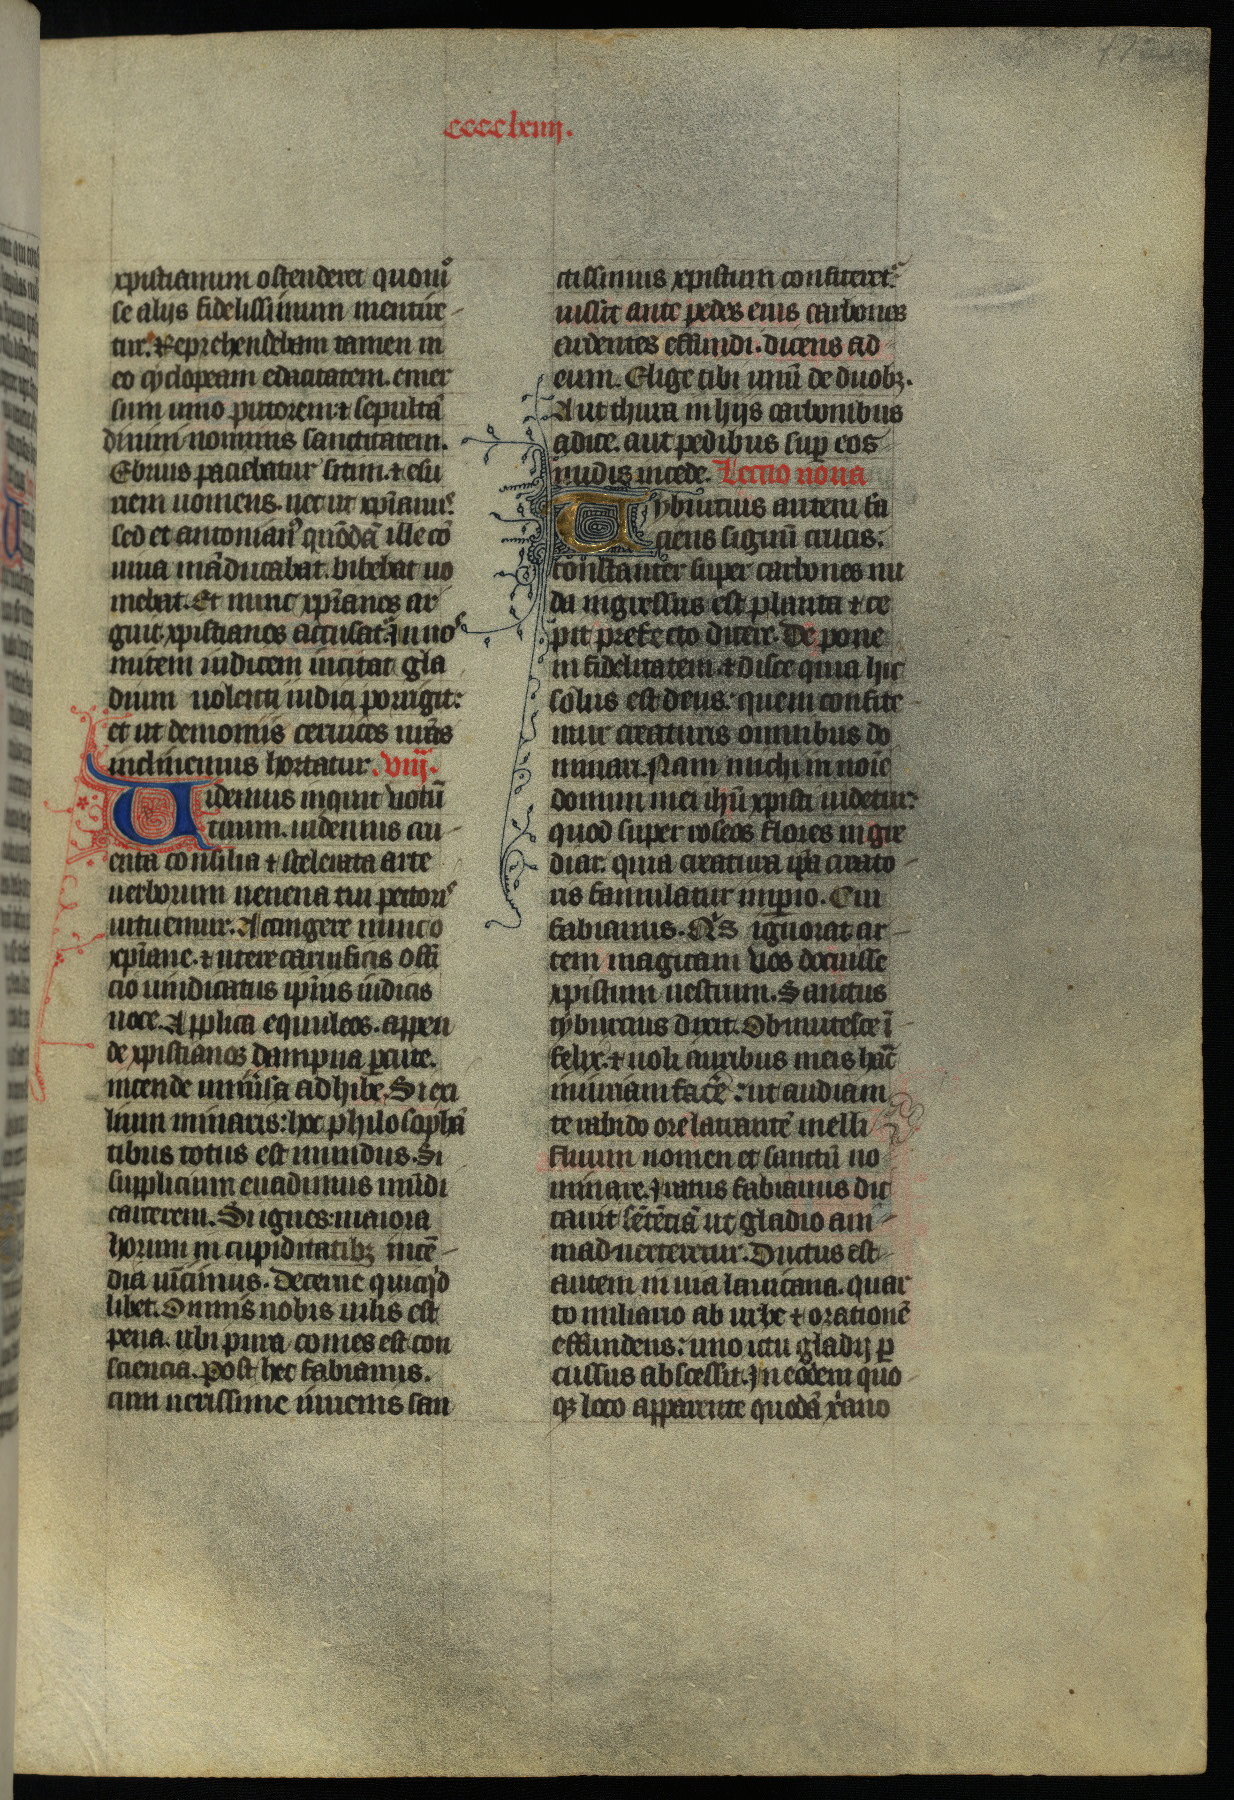 cccclxiiij.
xpistianum ostenderet quoniā
se alijs fidelissimum mentire-
tur. Reprehendebam tamen in
eo cyclopeam edacitatem. emer
sum uino putorem: ⁊ sepultā
dinini nominis sanctitatem.
Ebrius paciebatur sitim. ⁊ esu
riem uomens. nec ut xp̄ianus
sed et antonianꝰ quōdā ille cō
uiua māducabat. bibebat uo
mebat. Et nunc xp̄ianos ar
guit. xpistianos accusat.
mitem iudicem incitat gla
dium uolenti iudici porrigit:
et ut demoniis ceruices nr̄as
inclinemus hortatur. viij.
Uidemus inquit uotū
tuum. uidemus cru-
enta consilia ⁊ scelerata arte
uerborum uenena tui pectoris
intuemur. Accingere nunc o
xp̄iane. ⁊ utere carnificis offi
cio uindicatus ip̄ius iudicis
uoce. Applica equuleos. appen
de xpistianos dampna ꝑcute.
incende uniūsa adhibe. Si exi
lium minaris: hoc philosophā
tibus totus est mundus. Si
supplicium euadimus mūdi
carcerem. Si ignes: maiora
horum in cupiditatibꝫ incē-
dia uicimus. Decerne quicqͥd
libet. Omnis nobis uilis est
pena. ubi pura comes est con
sciencia. Post hec fabianus.
cum uerissime iuuenis san
ctissimus xpistum confiteret᷑
iussit ante pedes eius carbones
ardentes effundi. dicens ad
eum. Elige tibi unū de duobꝫ.
Aut thura in hijs carbonibus
adice. aut pedibus suꝑ eos
nudis incede. Lectio nona
Tyburcius autem fa
ciens signū crucis:
constanter super carbones nu
da ingressus est planta ⁊ ce
pit prefecto dicere. De pone
in fidelitatem. ⁊ disce quia hic
solus est deus: quem confite-
mur creaturis omnibus do
minari. Nam michi in noīe
domini mei ihū xpisti uidetur:
quod super roseos flores in gre
diar. quia creatura ip̄a creato-
ris famulatur imꝑio. Cui
fabianus. Qͥs ignorat ar-
tem magicam uos docuisse
xpistum uestrum. Sanctus
tyburcius dixit. Obmutesce ī
felix. ⁊ noli auribus meis hāc
iniuriam facē: ut audiam
te rabido ore latrantē melli
fluum nomen et sanctū no
minare. Iratus fabianus dic
tauit sētēciā ut gladio am-
mad uerteretur. Ductus est
autem in uia lauicana. quar
to miliario ab urbe ⁊ orationē
effundens: uno ictu gladij ꝑ
cussus abscessit. In eodem quo
qꝫ loco apparente quodā xr̄ano